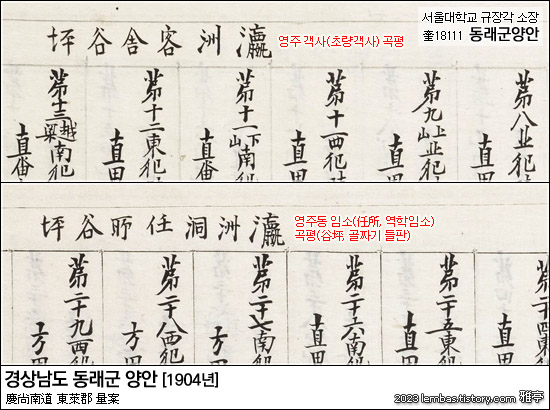 서울대학교 규장각 소장
奎18111 동래군양안
瀛洲客舍谷坪
영주 객사(초량객사) 곡평
苐八北犯
直田
苐九山上北犯
直田
苐十西犯
直田
苐十一山下南犯
直畓
苐十二東犯
直田
苐十三越梁南犯
直畓
瀛洲洞任所谷坪
영주동 임소(任所, 역학임소)
곡평(谷坪, 골짜기 들판)
直田
苐二十五東犯
直田
苐二十六南犯
直田
苐二十七南犯
方田
苐二十八西犯
方田
苐二十九西犯
方田
경상남도 동래군 양안 [1904년]
慶尚南道 東萊郡 量案
2023 lembas.tistory.com 雅亭